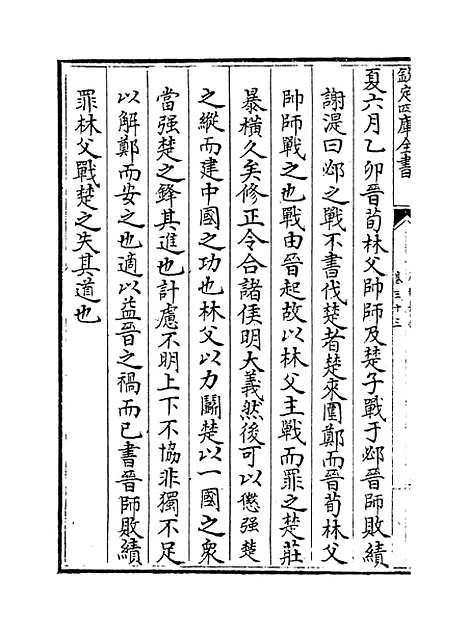 欽定四庫全書
卷三十三
夏六月乙卯晉荀林父帥師及楚子戰于邲晉師敗績
謝湜曰邲之戰不書伐楚者楚來圍鄭而晉荀林父
帥師戰之也戰由晉起故以林父主戰而罪之楚莊
暴橫久矣修正令合諸侯明大義然後可以懲强楚
之縱而建中國之功也林父以力鬬楚以一國之衆
當强楚之鋒其進也計慮不明上下不協非獨不足
以解鄭而安之也適以益晉之禍而已書晉師敗績
罪林父戰楚之失其道也